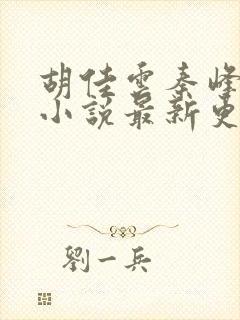 胡佳雲秦峰
小說最新更
劉一兵